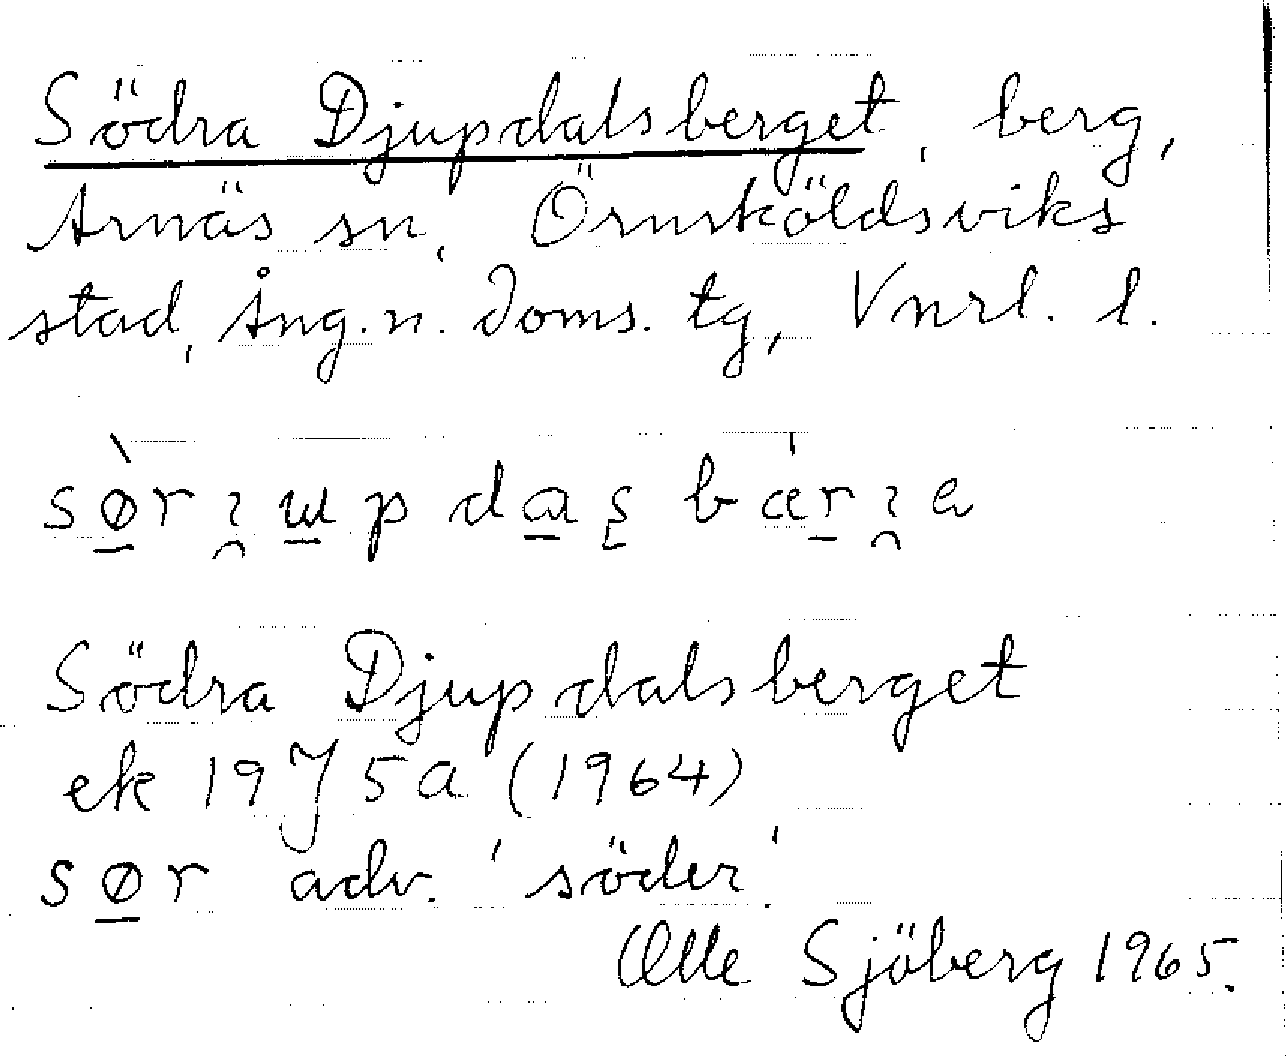 Södra Djupdalsberget, berg,
Arnäs sn, Örnsköldsviks
stad, Ång. n. doms. tg, Vnrl. l.
Södra Djupdalsberget
ek 19 J 5a (1964)
sør adv. 'söder'.
Olle Sjöberg 1965.